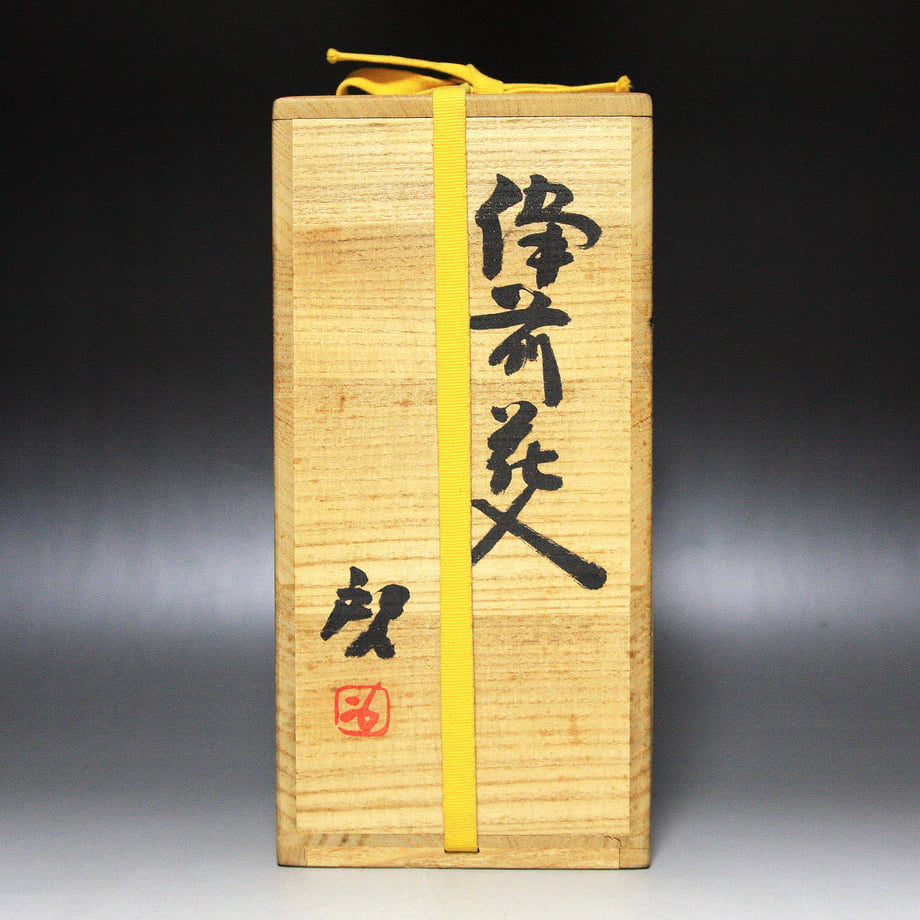 備前花入